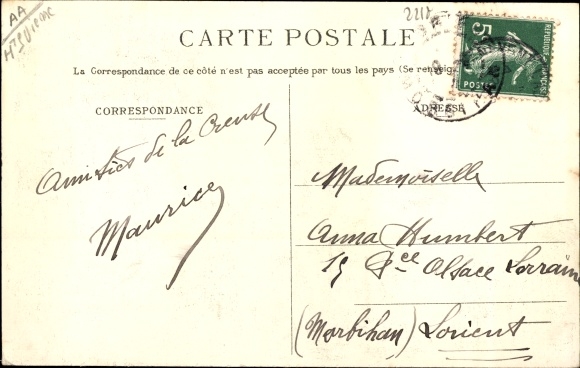 AA
Hte Vienne
2217
CARTE POSTALE
La Correspondance de ce côté n'est pas acceptée par tous les pays (Se renseig
CORRESPONDANCE
ADRESSE
5
POSTES
Amitiés de la Creuse
Maurice
Mademoiselle
Anna Humbert
15 Pce Alsace Lorraine
(Morbihan) Lorient